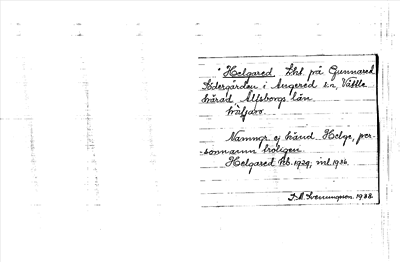 * Helgared Lht. på Gunnared
Södergården i Angered sn, Vättle
härad, Älfsborgs län.
Namngr. ej känd. Helge, per-
sonnamn troligen.
Helgared kb. 1929, inl. 1936.
1938